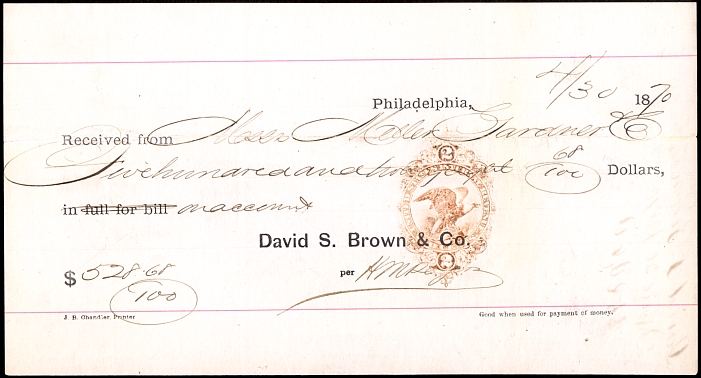 4/30
Philadelphia, 1870
Received from Mess Gardner & Co
Five hundred and twenty eight 68/100 Dollars,
in full for bill on account
David S. Brown & Co.
$ 528.68/100 per
J. B. Chandler, Printer Good when used for payment of money.